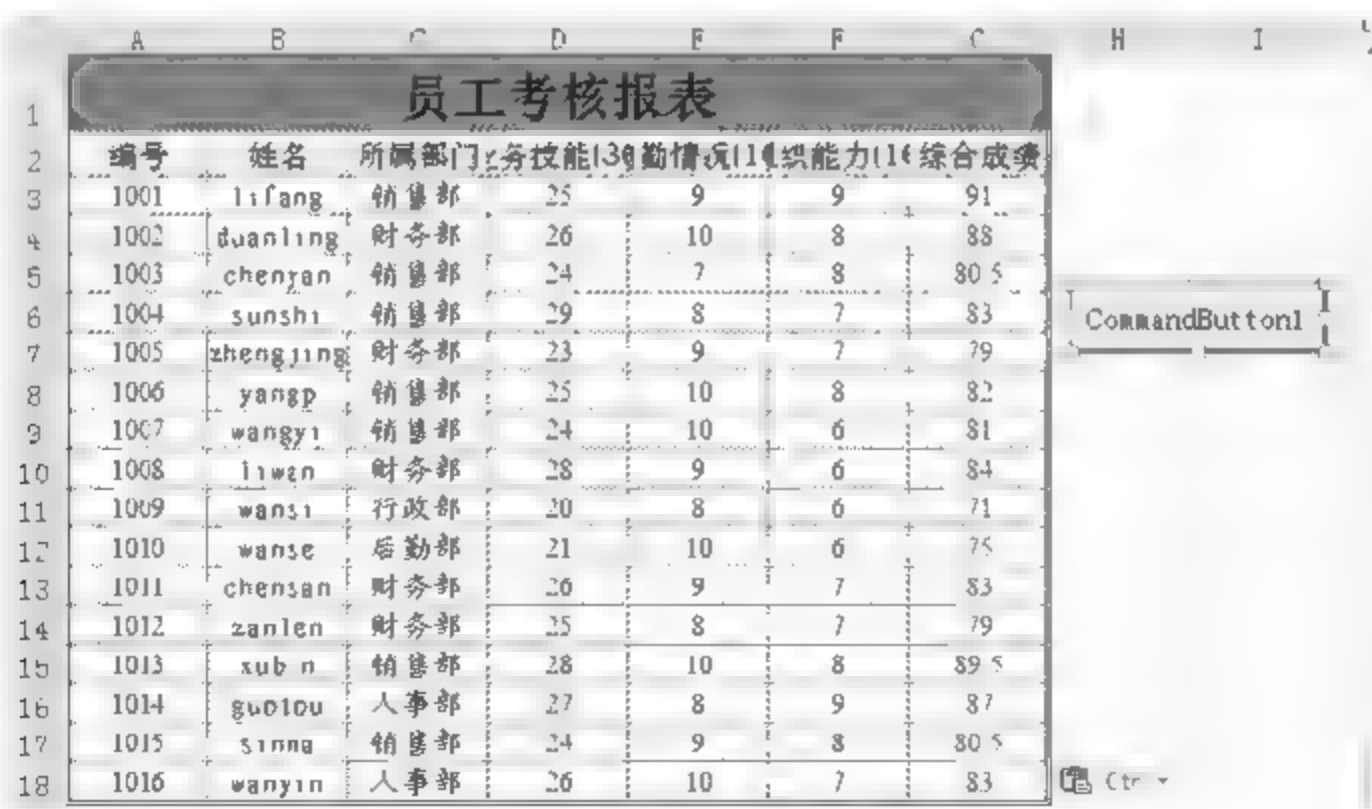 A B C D E F G H I
1 员工考核报表
2 编号 姓名 所属部门 务技能(30 勤情况(10 织能力(10 综合成绩
3 1001 lifang 销售部 25 9 9 91
4 1002 duanling 财务部 26 10 8 88
5 1003 chenyan 销售部 24 7 8 80.5
6 1004 sunshi 销售部 29 8 7 83
CommandButton1
7 1005 zhengjing 财务部 23 9 7 79
8 1006 yangp 销售部 25 10 8 82
9 1007 wangyi 销售部 24 10 6 81
10 1008 liwen 财务部 28 9 6 84
11 1009 wansi 行政部 20 8 6 71
12 1010 wanse 后勤部 21 10 6 75
13 1011 chensan 财务部 26 9 7 83
14 1012 zanlen 财务部 25 8 7 79
15 1013 xubin 销售部 28 10 8 89.5
16 1014 人事部 27 8 9 87
17 1015 销售部 24 9 8 80.5
18 1016 wanyin 人事部 26 10 7 83